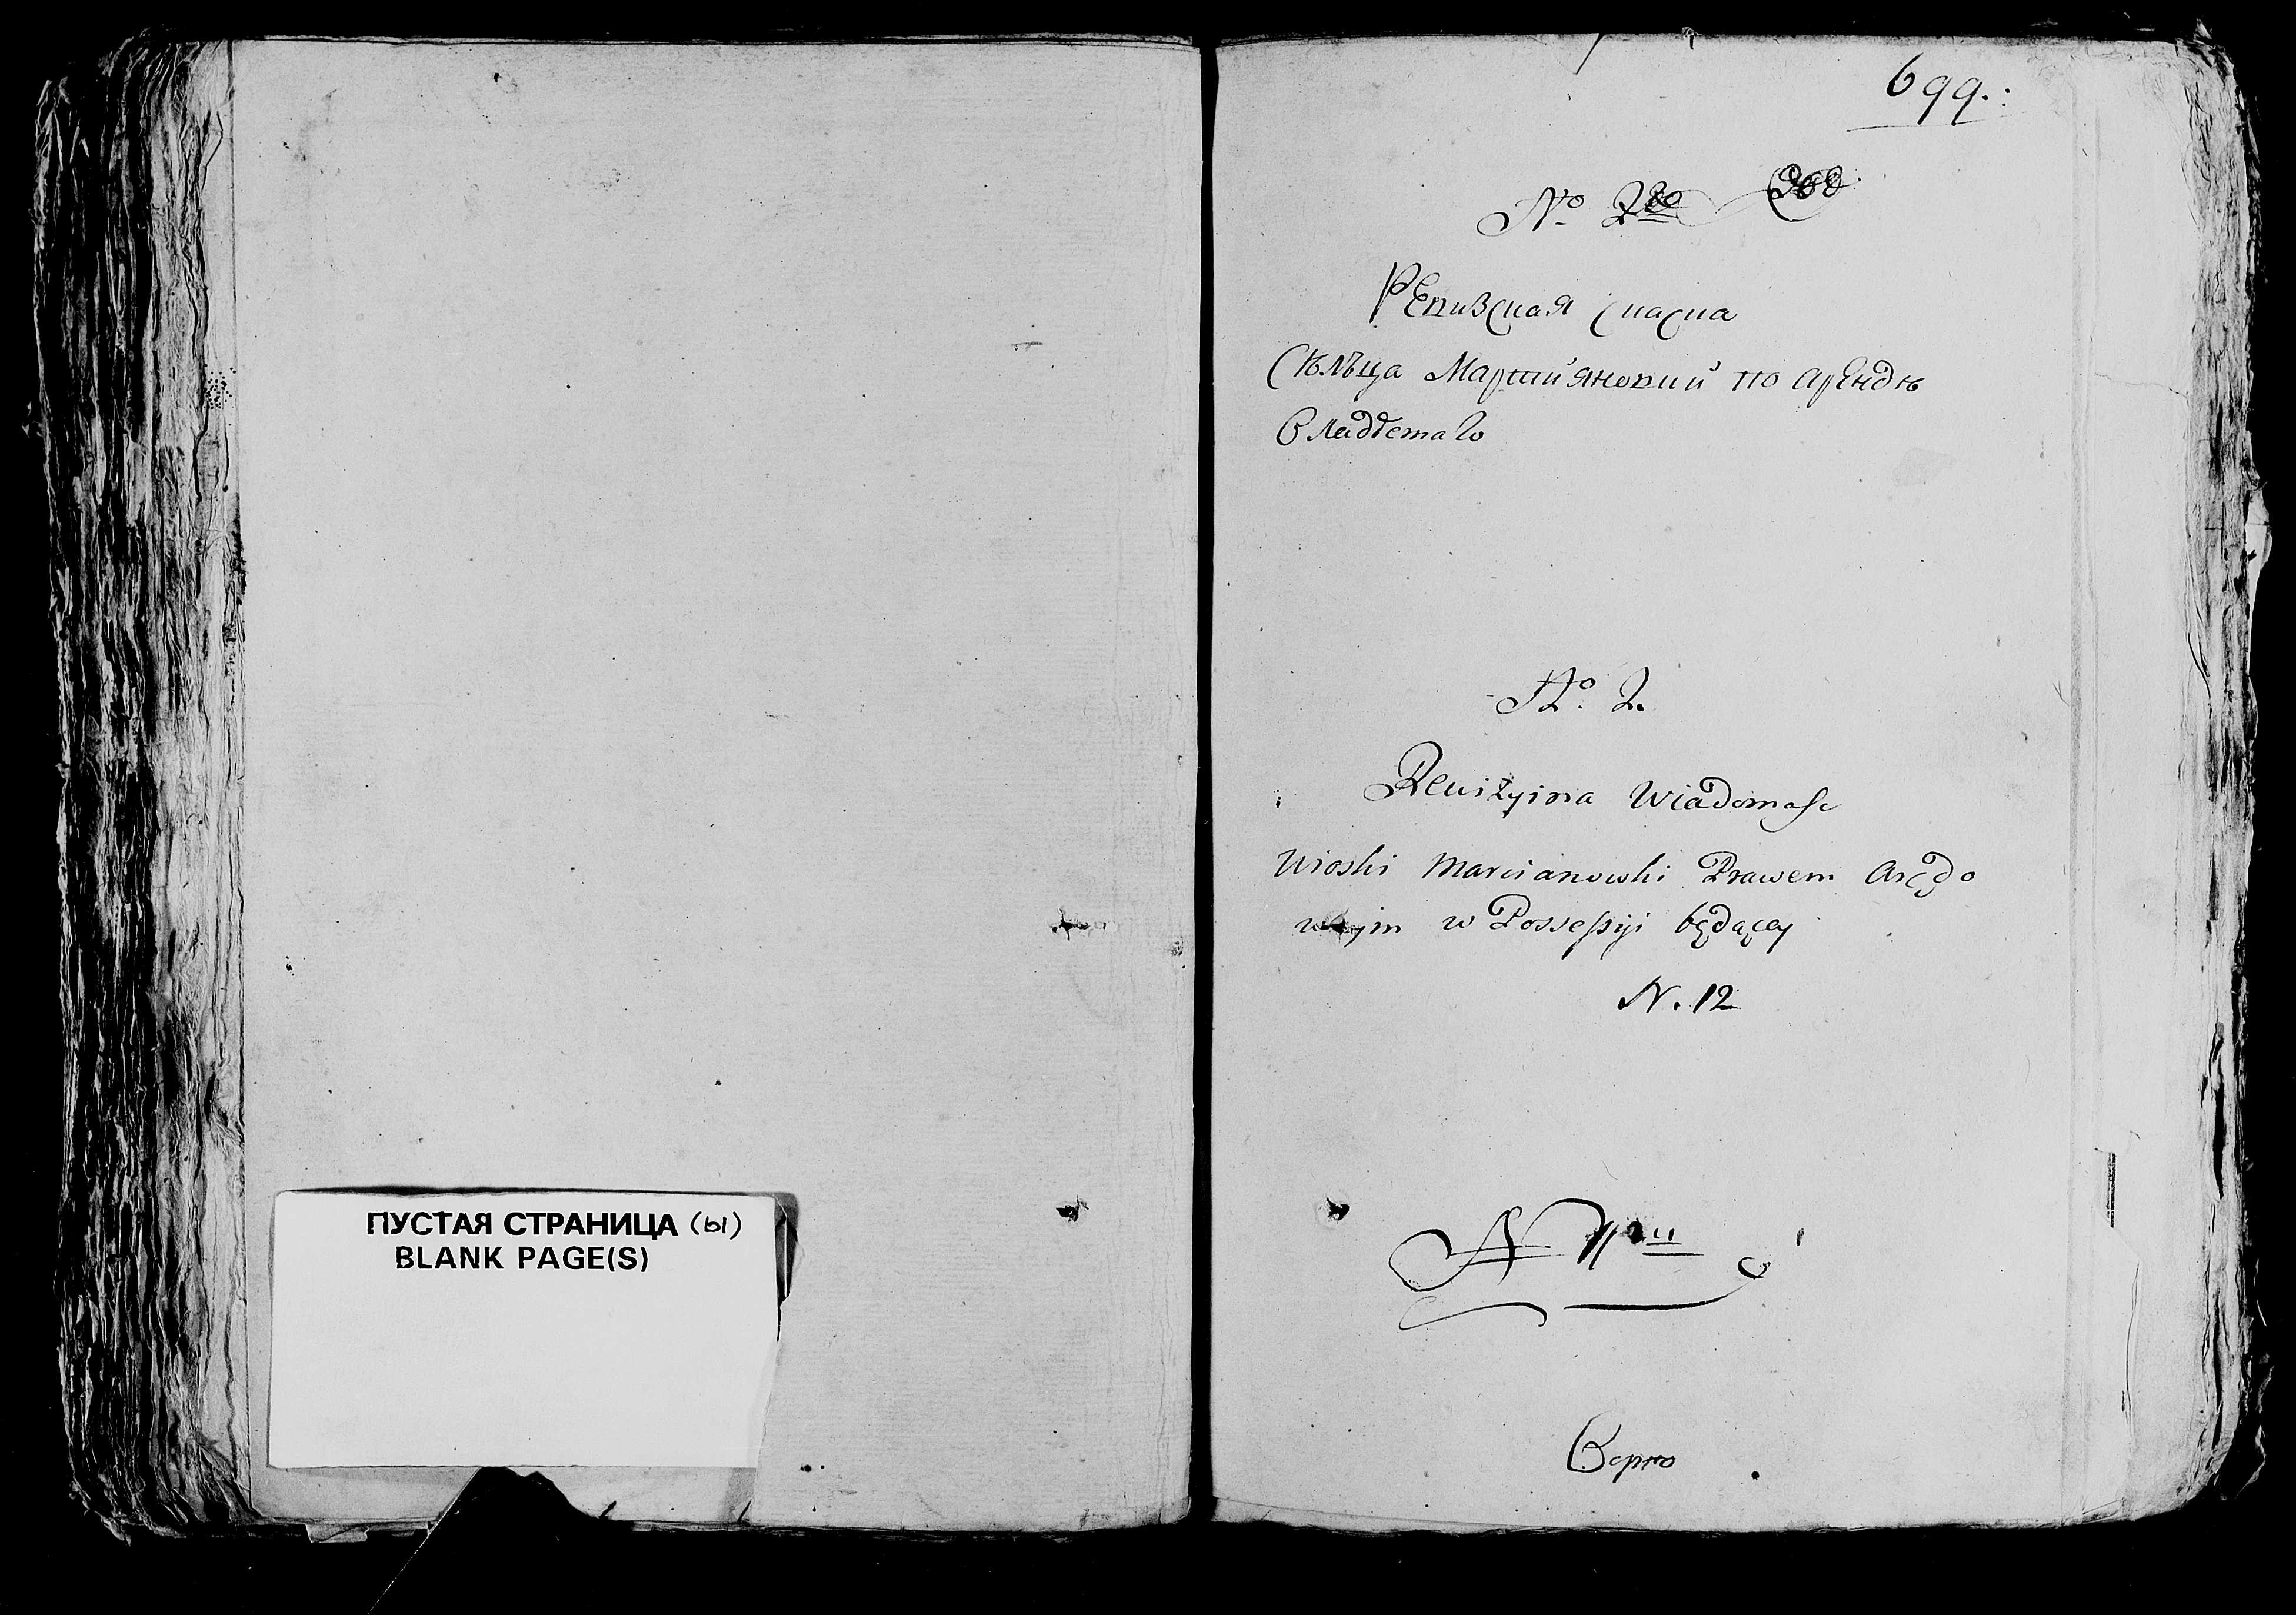 ПУСТАЯ СТРАНИЦА (ы)
BLANK PAGE(S)
699.:
№ 2
Ревизская скаска
Сѣльца Мартияновки по арендѣ
Владдемаго
No. 2.
Rewizyina Wiadomosc
Wioski Marcianowki Prawem Arędo
wnym w Possessyi będącey
N. 12
N
Верно